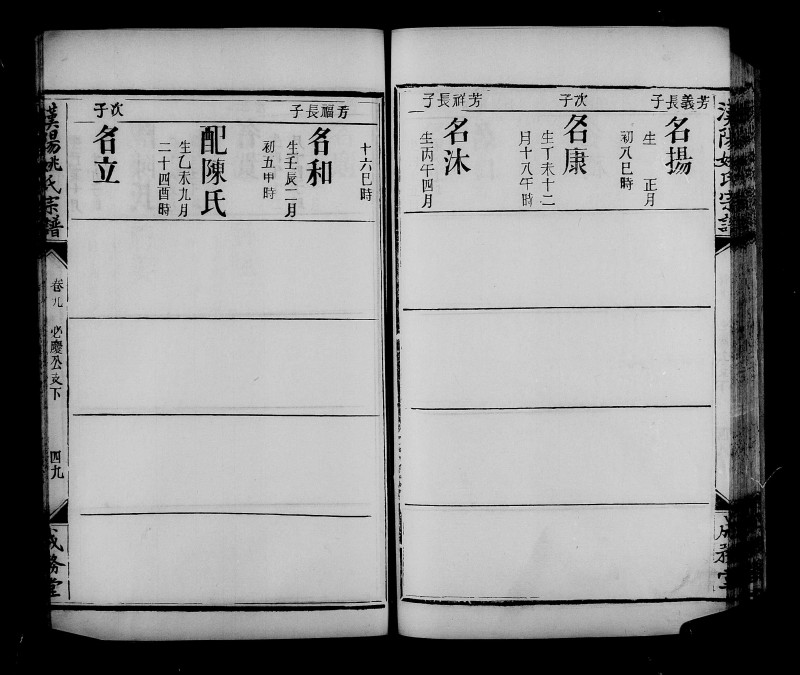 漢陽姚氏宗譜
成務堂
芳義長子
名揚
生　正月
初八巳時
次子
名康
生丁未十二
月十八午時
芳祥長子
名沐
生丙午四月
十六巳時
芳福長子
名和
生壬辰二月
初五甲時
配陳氏
生乙未九月
二十四酉時
次子
名立
漢陽姚氏宗譜
卷九
必慶公支下
四九
成務堂